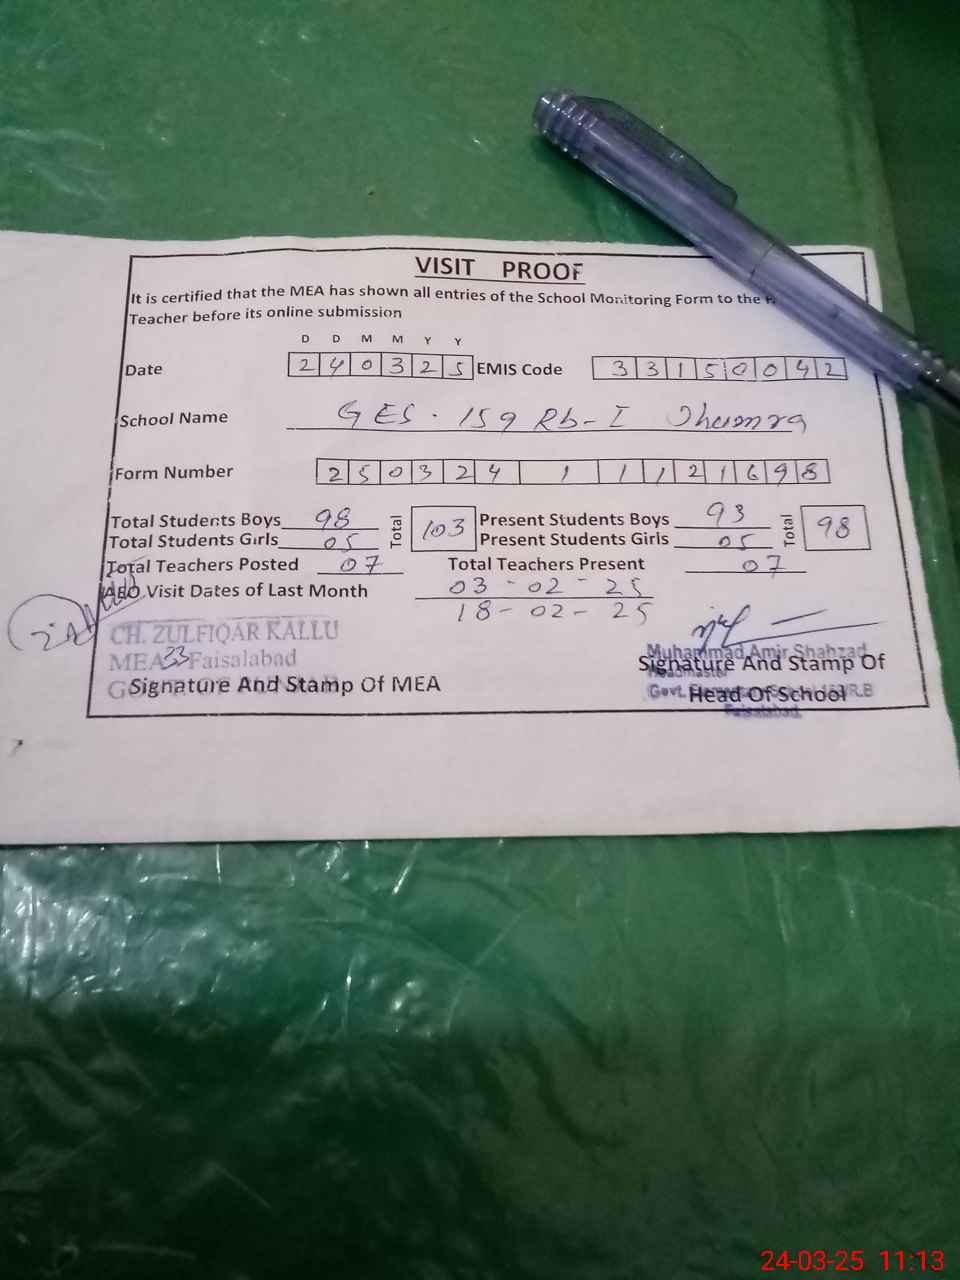 VISIT PROOF
It is certified that the MEA has shown all entries of the School Monitoring Form to the
Teacher before its online submission
D D M M Y Y
Date 2 4 0 3 2 5 EMIS Code 3 3 1 5 0 0 4 2
School Name GES. 159 Rb-I Dhamra
Form Number 2 5 0 3 2 4 1 1 1 2 1 6 9 8
Total Students Boys 98 Total 103 Present Students Boys 93 Total 98
Total Students Girls 05 Present Students Girls 05
Total Teachers Posted 07 Total Teachers Present 07
AEO Visit Dates of Last Month 03-02-25
18-02-25
CH. ZULFIQAR KALLU
MEA 33 Faisalabad
Signature And Stamp Of MEA
Muhammad Amir Shahzad
Headmaster
Signature And Stamp Of
Govt. R.B
Head Of School
Faisalabad
24-03-25 11:13